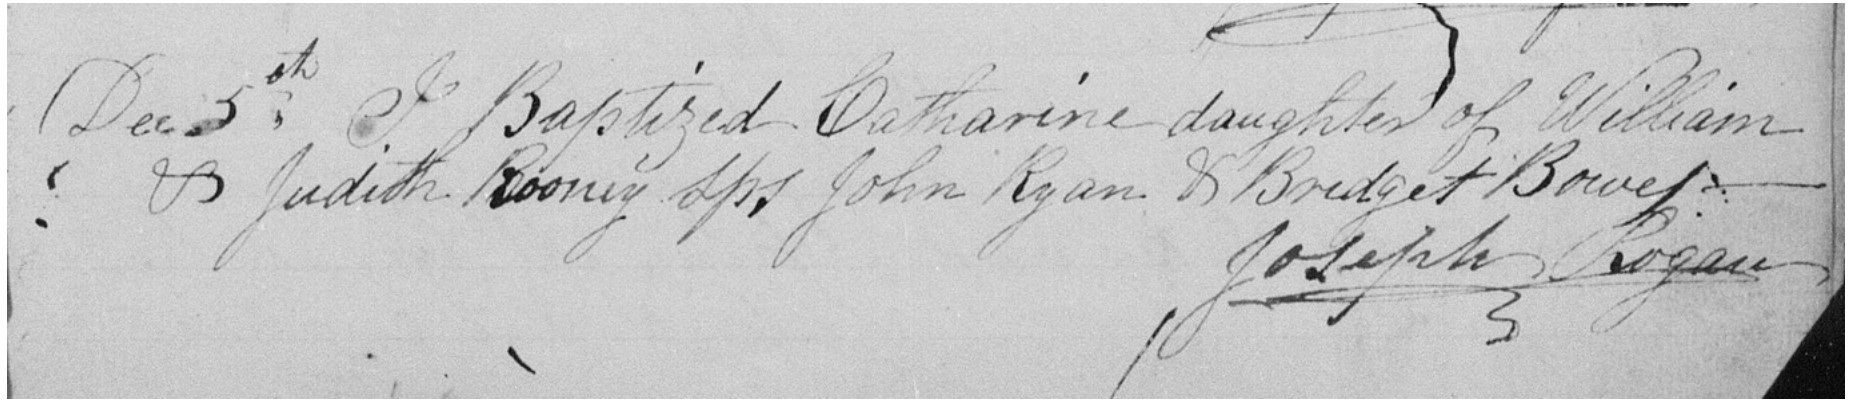 Dec 5th I Baptized Catharine daughter of William
& Judith Rooney sps John Ryan & Bridget Bowes
Joseph Rogan